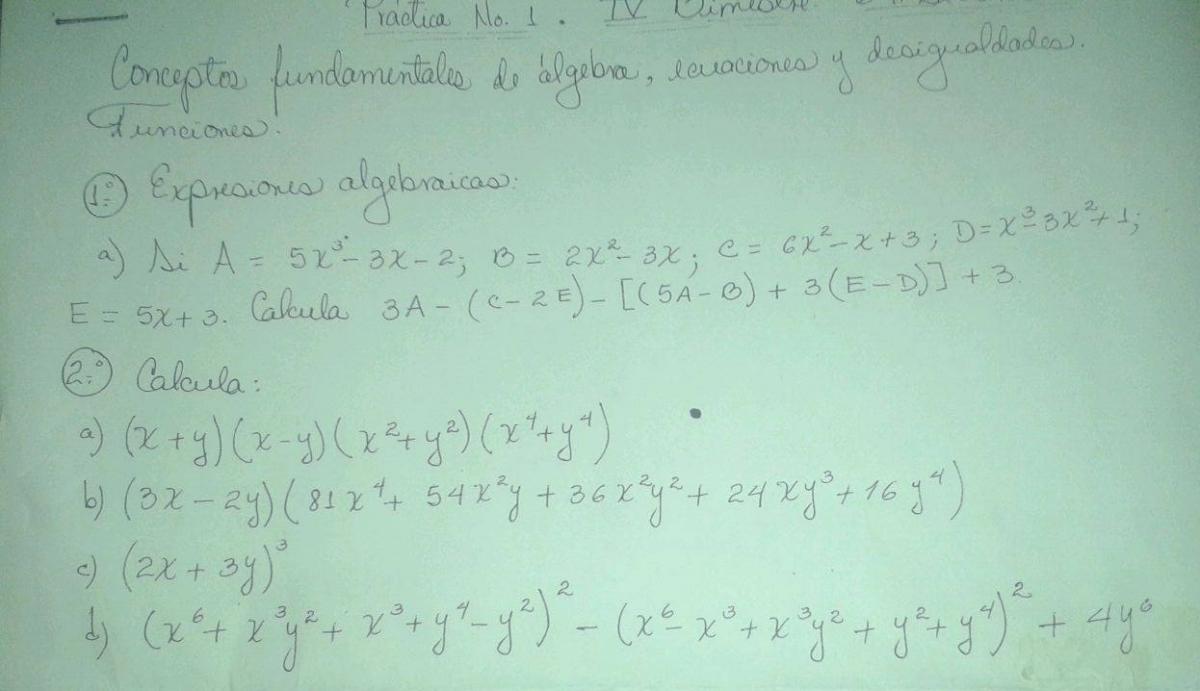 Práctica No. 1. IV Bimestre.
Conceptos fundamentales de álgebra, ecuaciones y desigualdades.
Funciones.
1º Expresiones algebraicas:
a) Si A = 5x³ - 3x - 2; B = 2x² - 3x; C = 6x² - x + 3; D = x³ - 3x² + 1;
E = 5x + 3. Calcula 3A - (C - 2E) - [(5A - B) + 3(E - D)] + 3.
2º Calcula:
a) (x + y)(x - y)(x² + y²)(x⁴ + y⁴)
b) (3x - 2y)(81x⁴ + 54x²y + 36x²y² + 24xy³ + 16y⁴)
c) (2x + 3y)³
d) (x⁶ + x³y² + x³ + y⁴ - y²)² - (x⁶ - x³ + x³y² + y² + y⁴)² + 4y⁶